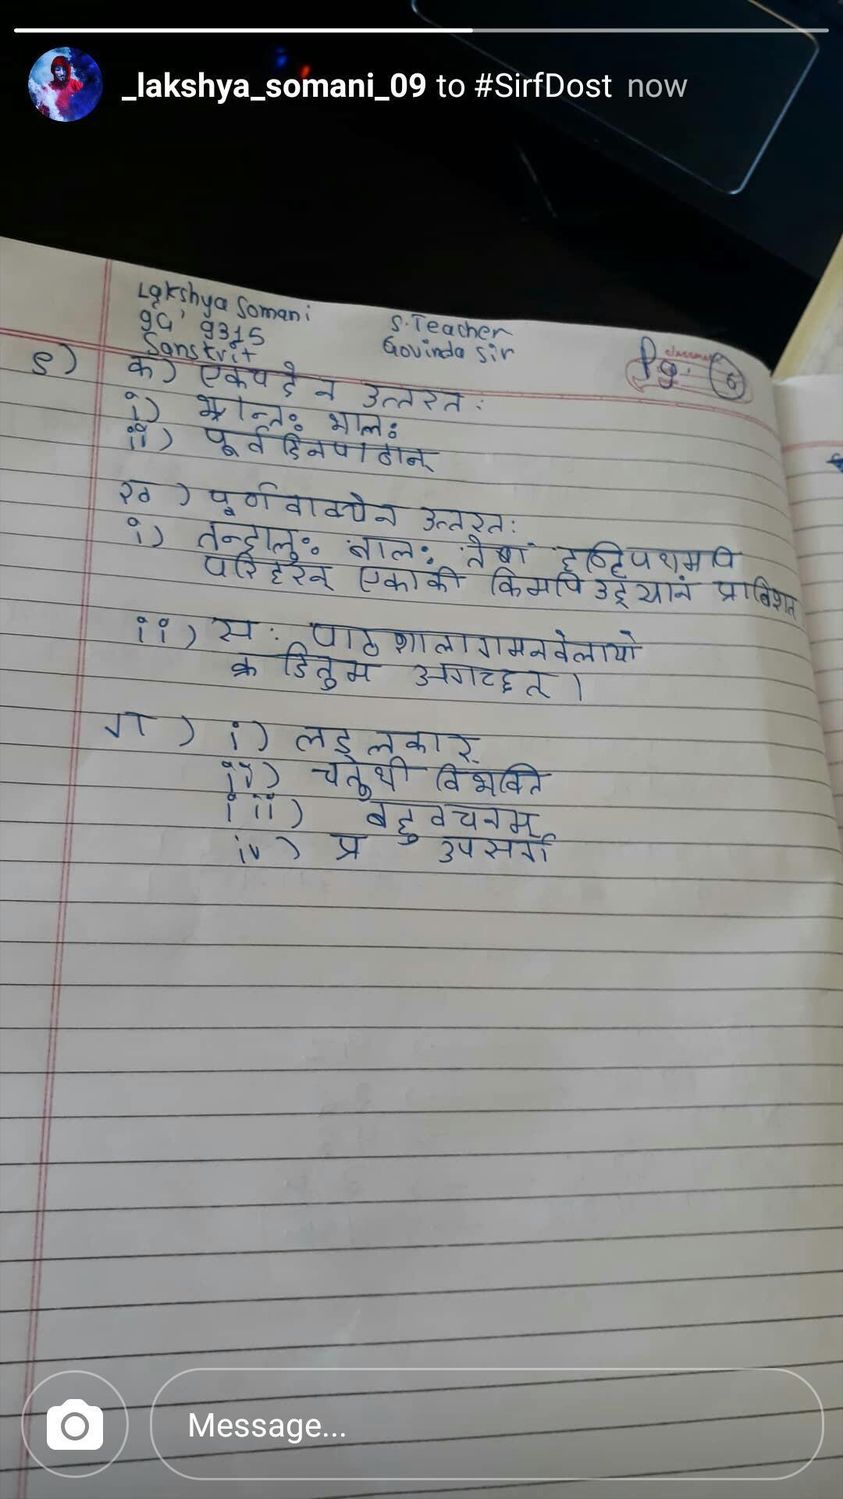 _lakshya_somani_09 to #SirfDost now
Lakshya Somani
9G' 9315
Sanskrit
S.Teacher
Govinda Sir
classmate
Pg. 6
क) एकपदेन उत्तरत:
i) भ्रान्तः भालः
ii) पूर्वदिनपाठान्
ख) पूर्णवाक्येन उत्तरत:
i) तन्द्रालुः बालः तेषां दृष्टिपथमपि
परिहरन् एकाकी किमपि उद्यानं प्राविशत
ii) स: पाठशालागमनवेलायो
क्रडितुम अगच्छत् ।
ग) i) लङ् लकार्
ii) चतुर्थी विभक्ति
iii) बहुवचनम्
iv) प्र उपसर्ग
Message...